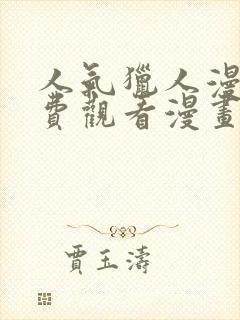 人氣獵人漫
費觀看漫畫
賈玉濤